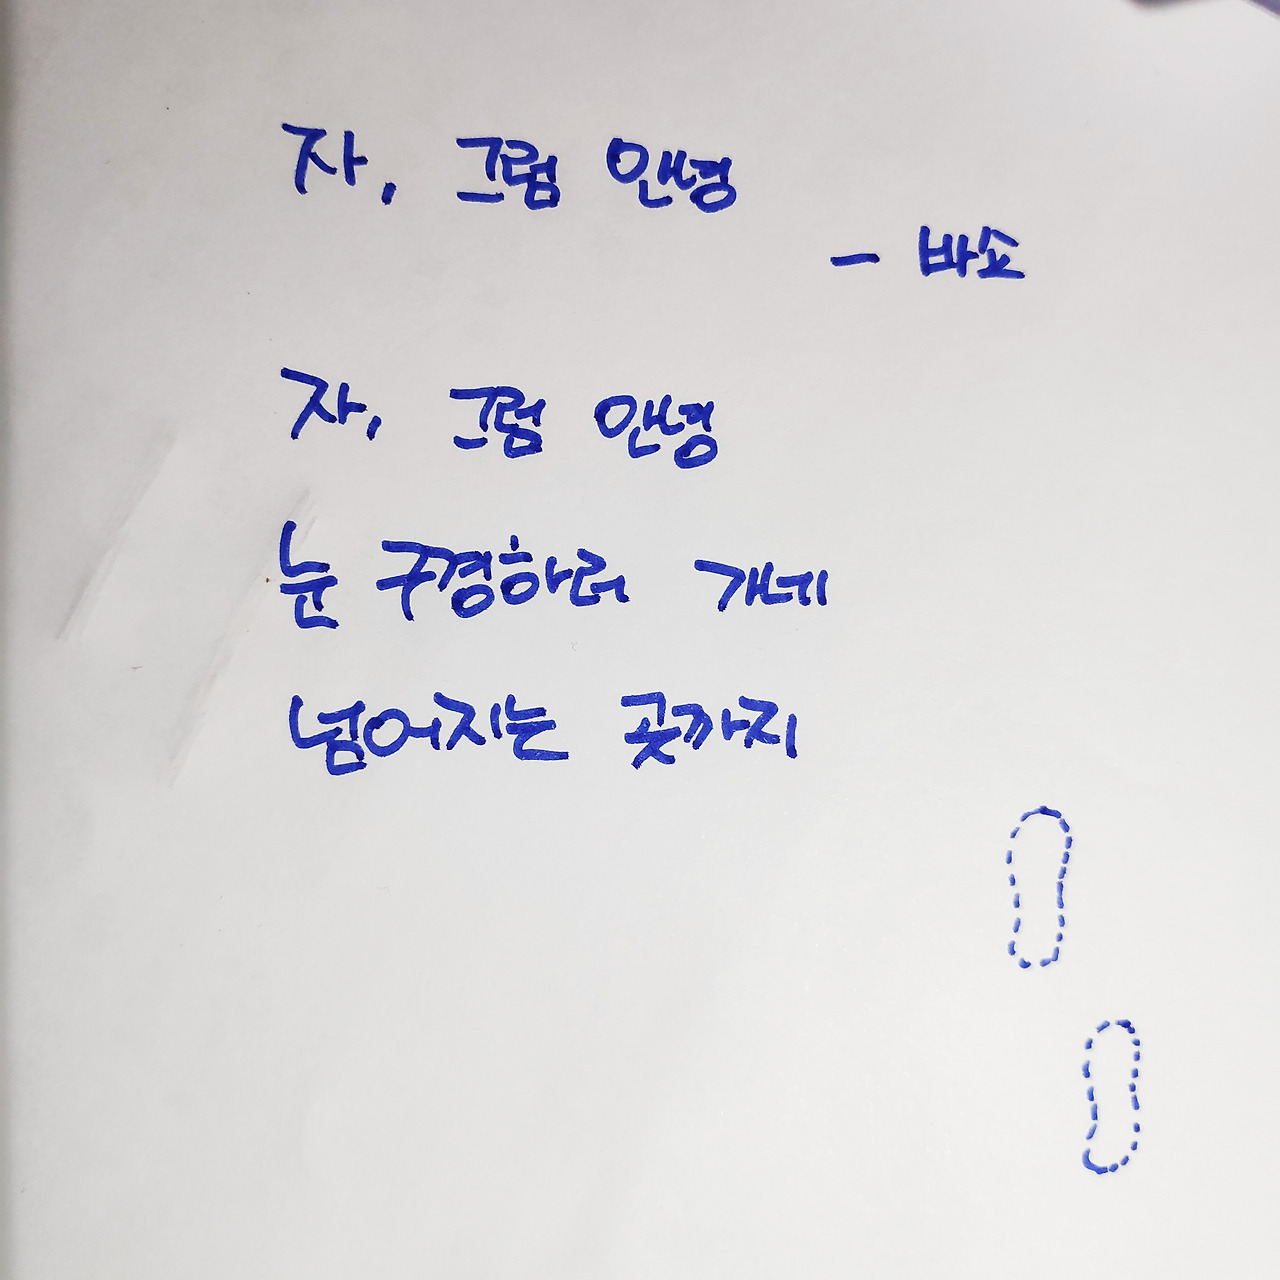 자, 그럼 안녕
- 바쇼
자, 그럼 안녕
눈 구경하러 가네
넘어지는 곳까지